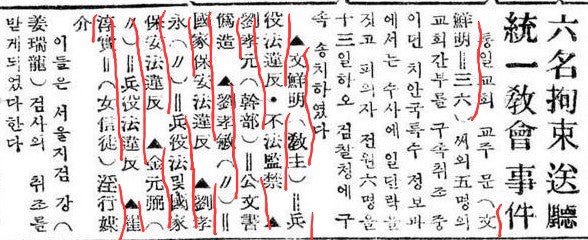 六名拘束送廳
統一敎會事件
통일교회 교주 문(文
鮮明=三六)씨외五명의
교회간부를 구속취조중
이던 치안국특수정보과
에서는 수사에 일단락을
짓고 피의자 전원六명을
十三일하오 검찰청에 구
속 송치하였다
▲文鮮明(敎主)=兵
役法違反·不法監禁 ▲
劉孝元(幹部)=公文書
僞造 ▲劉孝敏(〃)=
國家保安法違反 ▲劉孝
永(〃)=兵役法및國家
保安法違反 ▲金元弼(
〃)=兵役法違反 ▲崔
淳實(女信徒)淫行媒
介
이들은 서울지검 강(
姜瑞龍)검사의 취조를
받게되었다한다